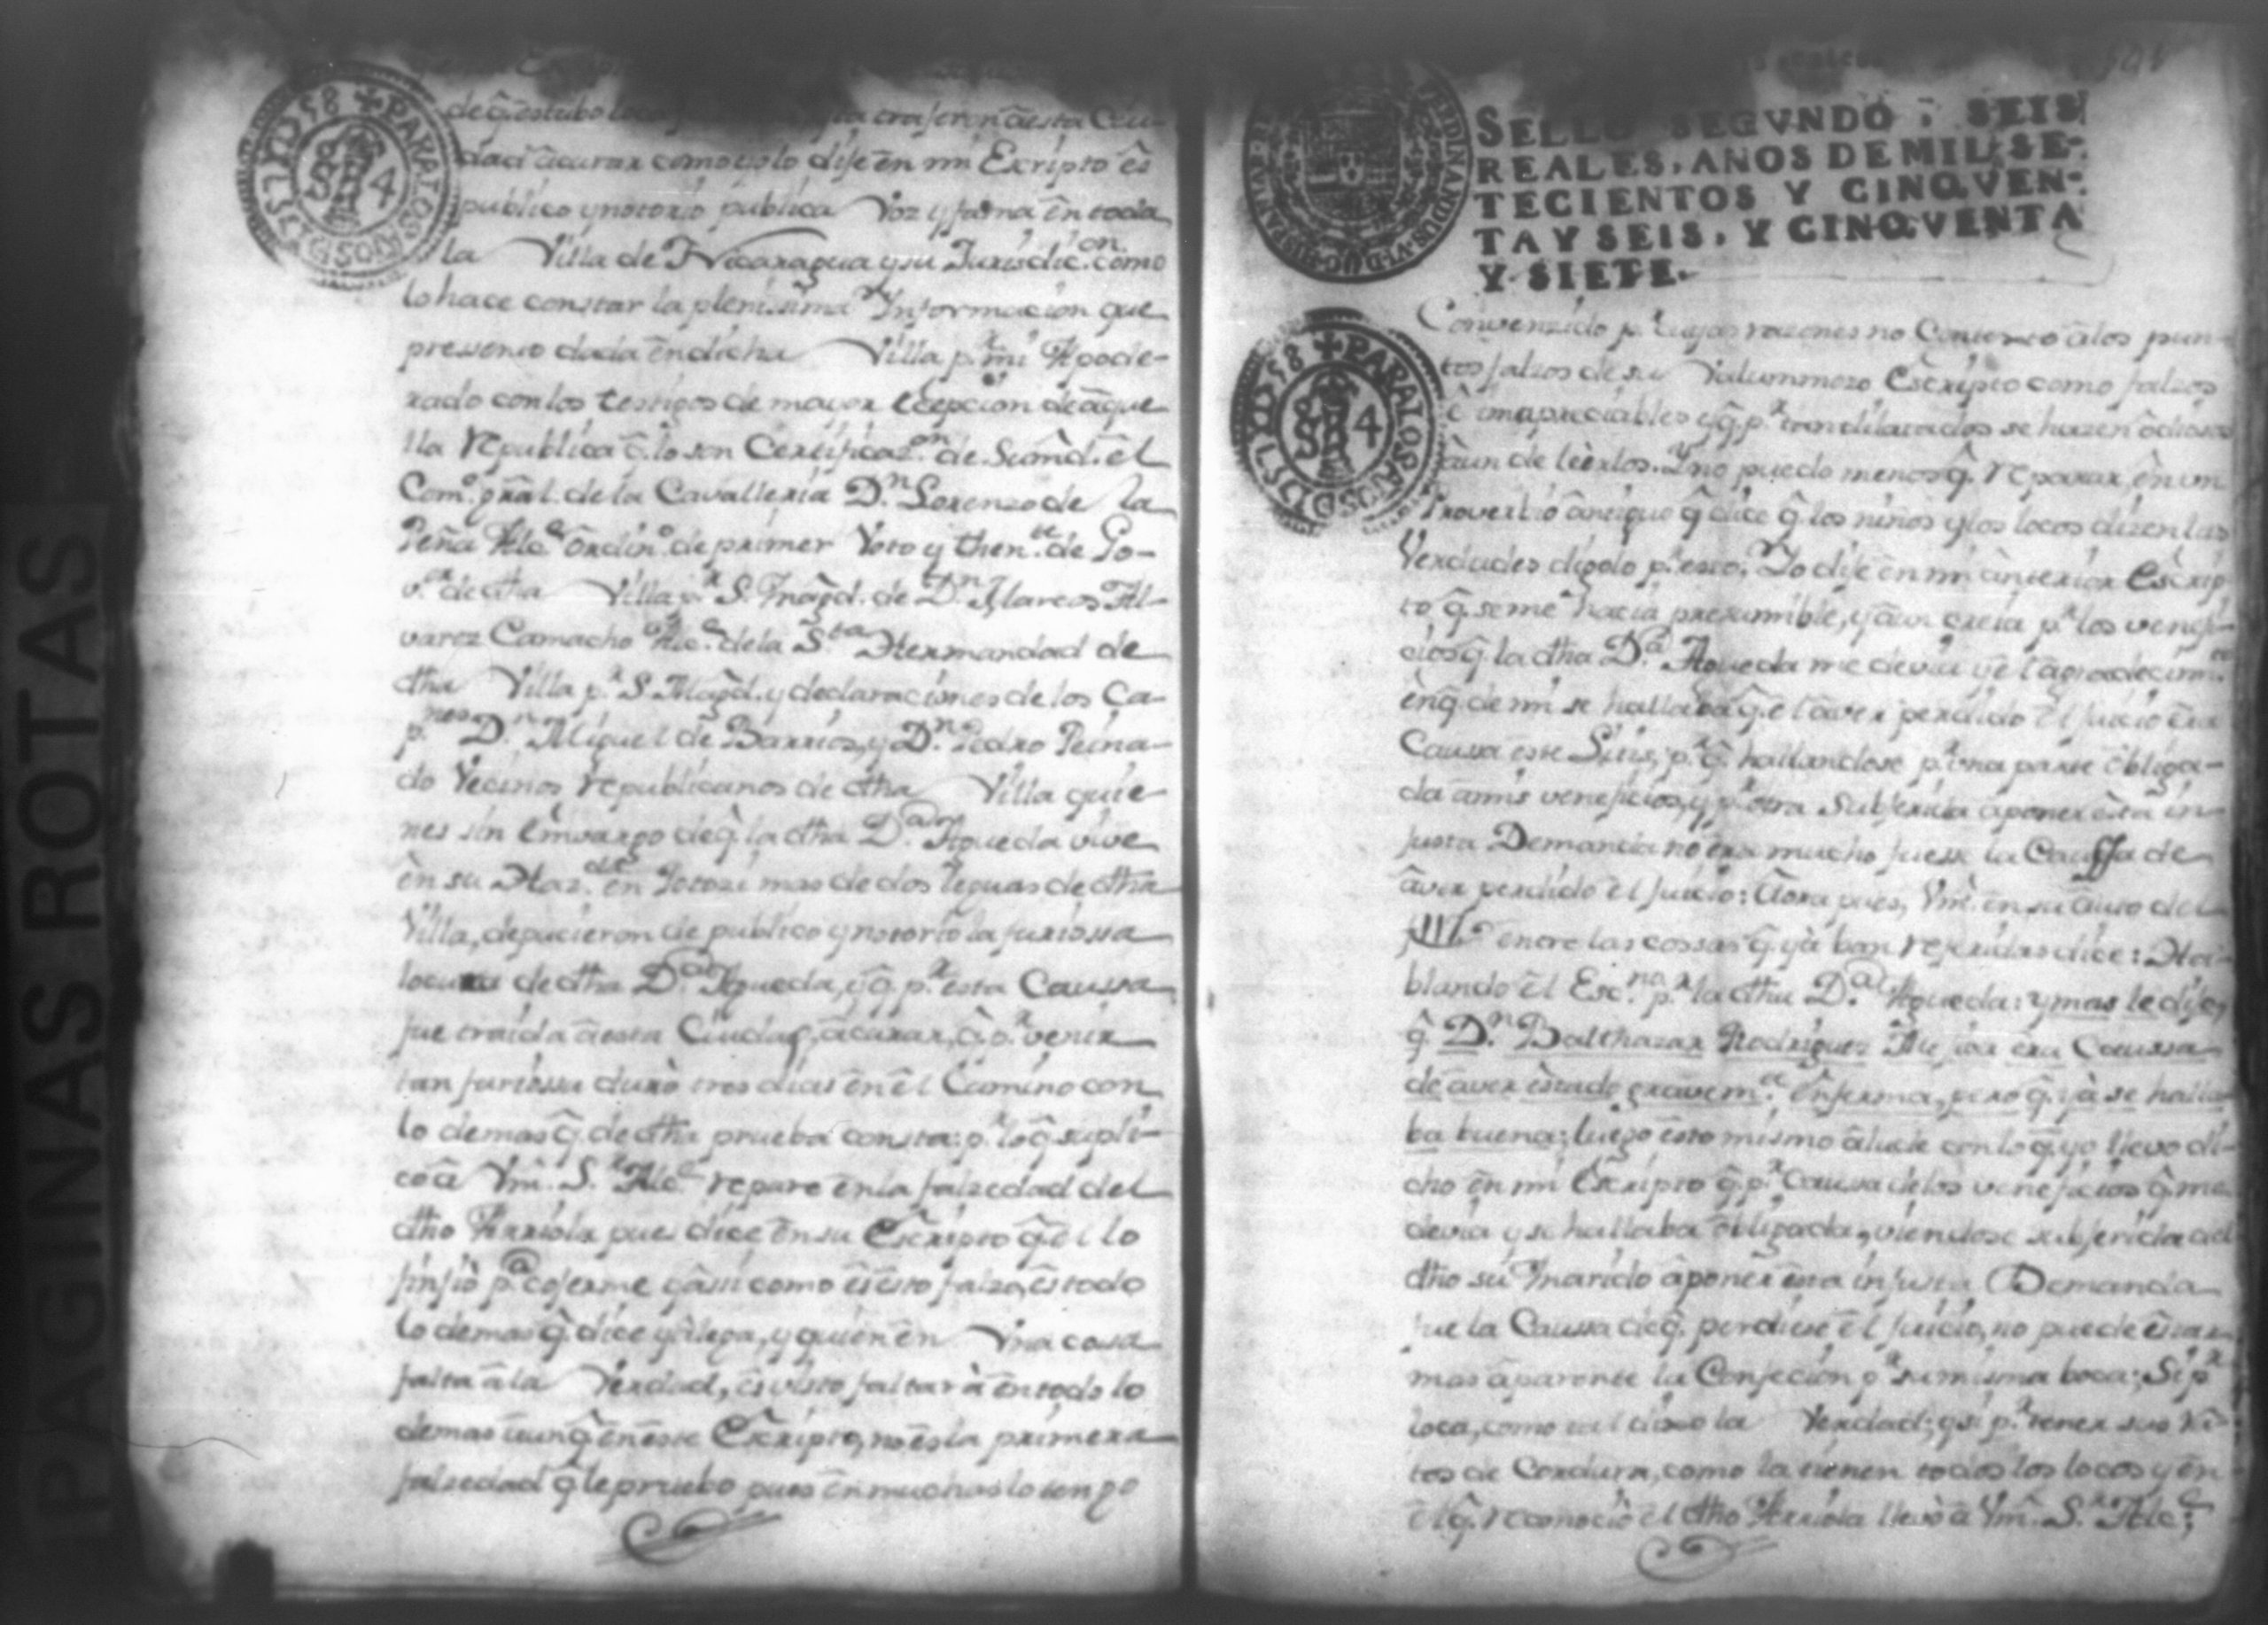 PAGINAS ROTAS
✠ PARA LOS AÑOS DE 1757 Y 1758
SR 4
de q̃ estubo loca
y la trajeron â esta Ciu-
dad â curar como yo lo dije ên mi Escripto ês
publico y notorio publica Voz y fama ên toda
la Villa de Nicaragua y su Jurisdic.on como
lo hace constar la plenissima Informacion que
pressento dada ên dicha Villa p.r mi Apode-
rado con los testigos de mayor ecepcion de âque
lla republica q̃ lo son Certificaz.on de Su md. el
Com.o gral. de la Cavalleria D.n Lorenzo de la
Peña Alc.e ôrdin.o de primer Voto y then.te de Go-
v.or de dha Villa p.r S. Mag̃d. de D.n Marcos Al-
varez Camacho Alc.e de la S.ta Hermandad de
dha Villa p.r S. Mag̃d. y declaraciones de los Ca-
p.nes D.n Miguel de Barrios, y D.n Pedro Peina-
do Vecinos republicanos de dha Villa quie-
nes sin êmvargo de q̃ la dha D.a Agueda vive
ên su Haz.da ên Potosi mas de dos leguas de dha
Villa, depucieron de publico y notorio la furiossa
locura de dha D.a Agueda, y q̃ p.r esta Caussa
fue traida â esta Ciudad, â curar, q̃ p.r venir
tan furiossa durò tres dias ên êl Camino con
lo demas q̃ de dha prueba consta: p.r lo q̃ supli-
co â Vm̃. S.r Alc.e repare ên la falzedad del
dho Arriola pues dice ên su Escripto q̃ êl lo
finjiò p.a cojerme y âssi como ês êsto falzo, ês todo
lo demas q̃ dice y âlega, y quien ên Vna cosa
falta â la Verdad, ês visto faltarà ên todo lo
demas âunq̃ ên êste Escripto, no ês la primera
falzedad q̃ le pruebo pues ên muchas lo tengo
SELLO SEGVNDO, SEIS
REALES, AÑOS DE MIL SE-
TECIENTOS Y CINQVEN-
TA Y SEIS, Y CINQVENTA
Y SIETE.
✠ PARA LOS AÑOS DE 1757 Y 1758
SR 4
Convenzido p.r cuyas razones no Contexto â los pun-
tos falzos de su Calumniozo Escripto como falzos
ê impreciables y q̃ p.r tan dilatados se hazen ôdiosos
âun de leèrlos. Y no puedo menos q̃ reparar, ên un
Proverbio ântiguo q̃ dice q̃ los niños y los locos dizen las
Verdades digolo p.r esto. Yo dije ên mi ânterior Escrip-
to, q̃ se me hacia presumible, y âun creia p.r los venefi-
cios q̃ la dha D.a Agueda me devia y êl agradecim.to
ên q̃ de mi se hallaba q̃ êl âver perdido êl juicio êra
Caussa este Litis, p.r q̃ hallandose p.r una parte ôbliga-
da â mis veneficios, y p.r otra Subferida â poner êsta in-
justa Demanda no êra mucho fuese la Caussa de
âver perdido êl juicio: Aora pues, Vm̃. ên su âuto del
entre las cossas q̃ yà ban referidas dice: Ha-
blando êl Esc.no p.r la dha D.a Agueda: y mas le dijo,
q̃ D.n Balthazar Rodriguez Aujiar era Caussa
de aver èstado gravem.te ênferma, pero q̃ yà se halla-
ba buena; luego êsto mismo âlude con lo q̃ yo llevo di-
cho ên mi Escripto q̃ p.r Caussa de los veneficios q̃ me
devia y se hallaba ôbligada, viendose subferida del
dho su Marido â poner êsta injusta Demanda
fue la Caussa de q̃ perdiese êl juicio, no puede êstar
mas âparente la Confecion p.r su misma boca; Si p.r
loca, como tal dixo la Verdad; y si p.r tener sus ra-
tos de Cordura, como la tienen todos los locos y ên
êl q̃ reconociò êl dho Arriola llevò â Vm̃. S.r Alc.e;